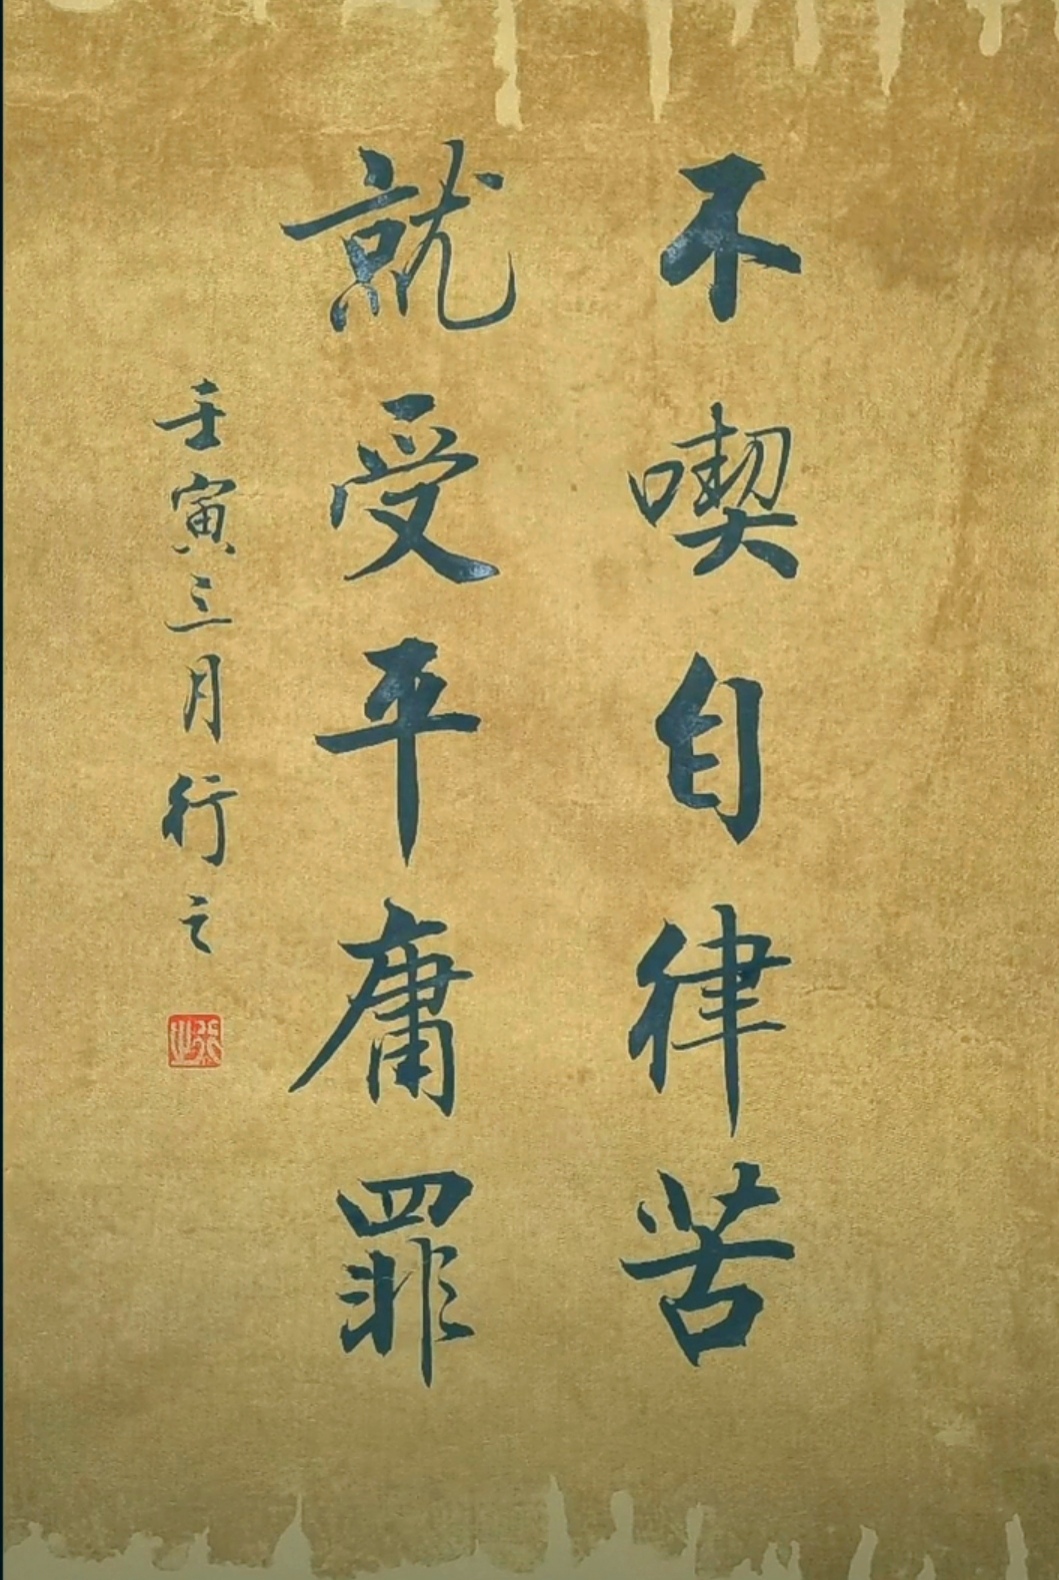 不喫自律苦
就受平庸罪
壬寅三月行之
行之